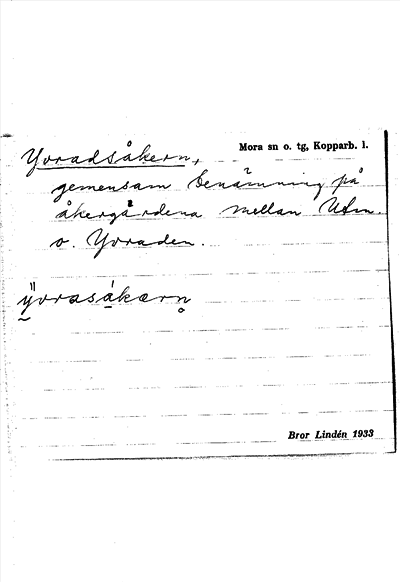 Mora sn o. tg, Kopparb. l.
Yvradsåkern,
gemensam benämning på
åkergärdena mellan Utm.
o. Yvraden.
ÿvrasákærn̥
Bror Lindén 1933